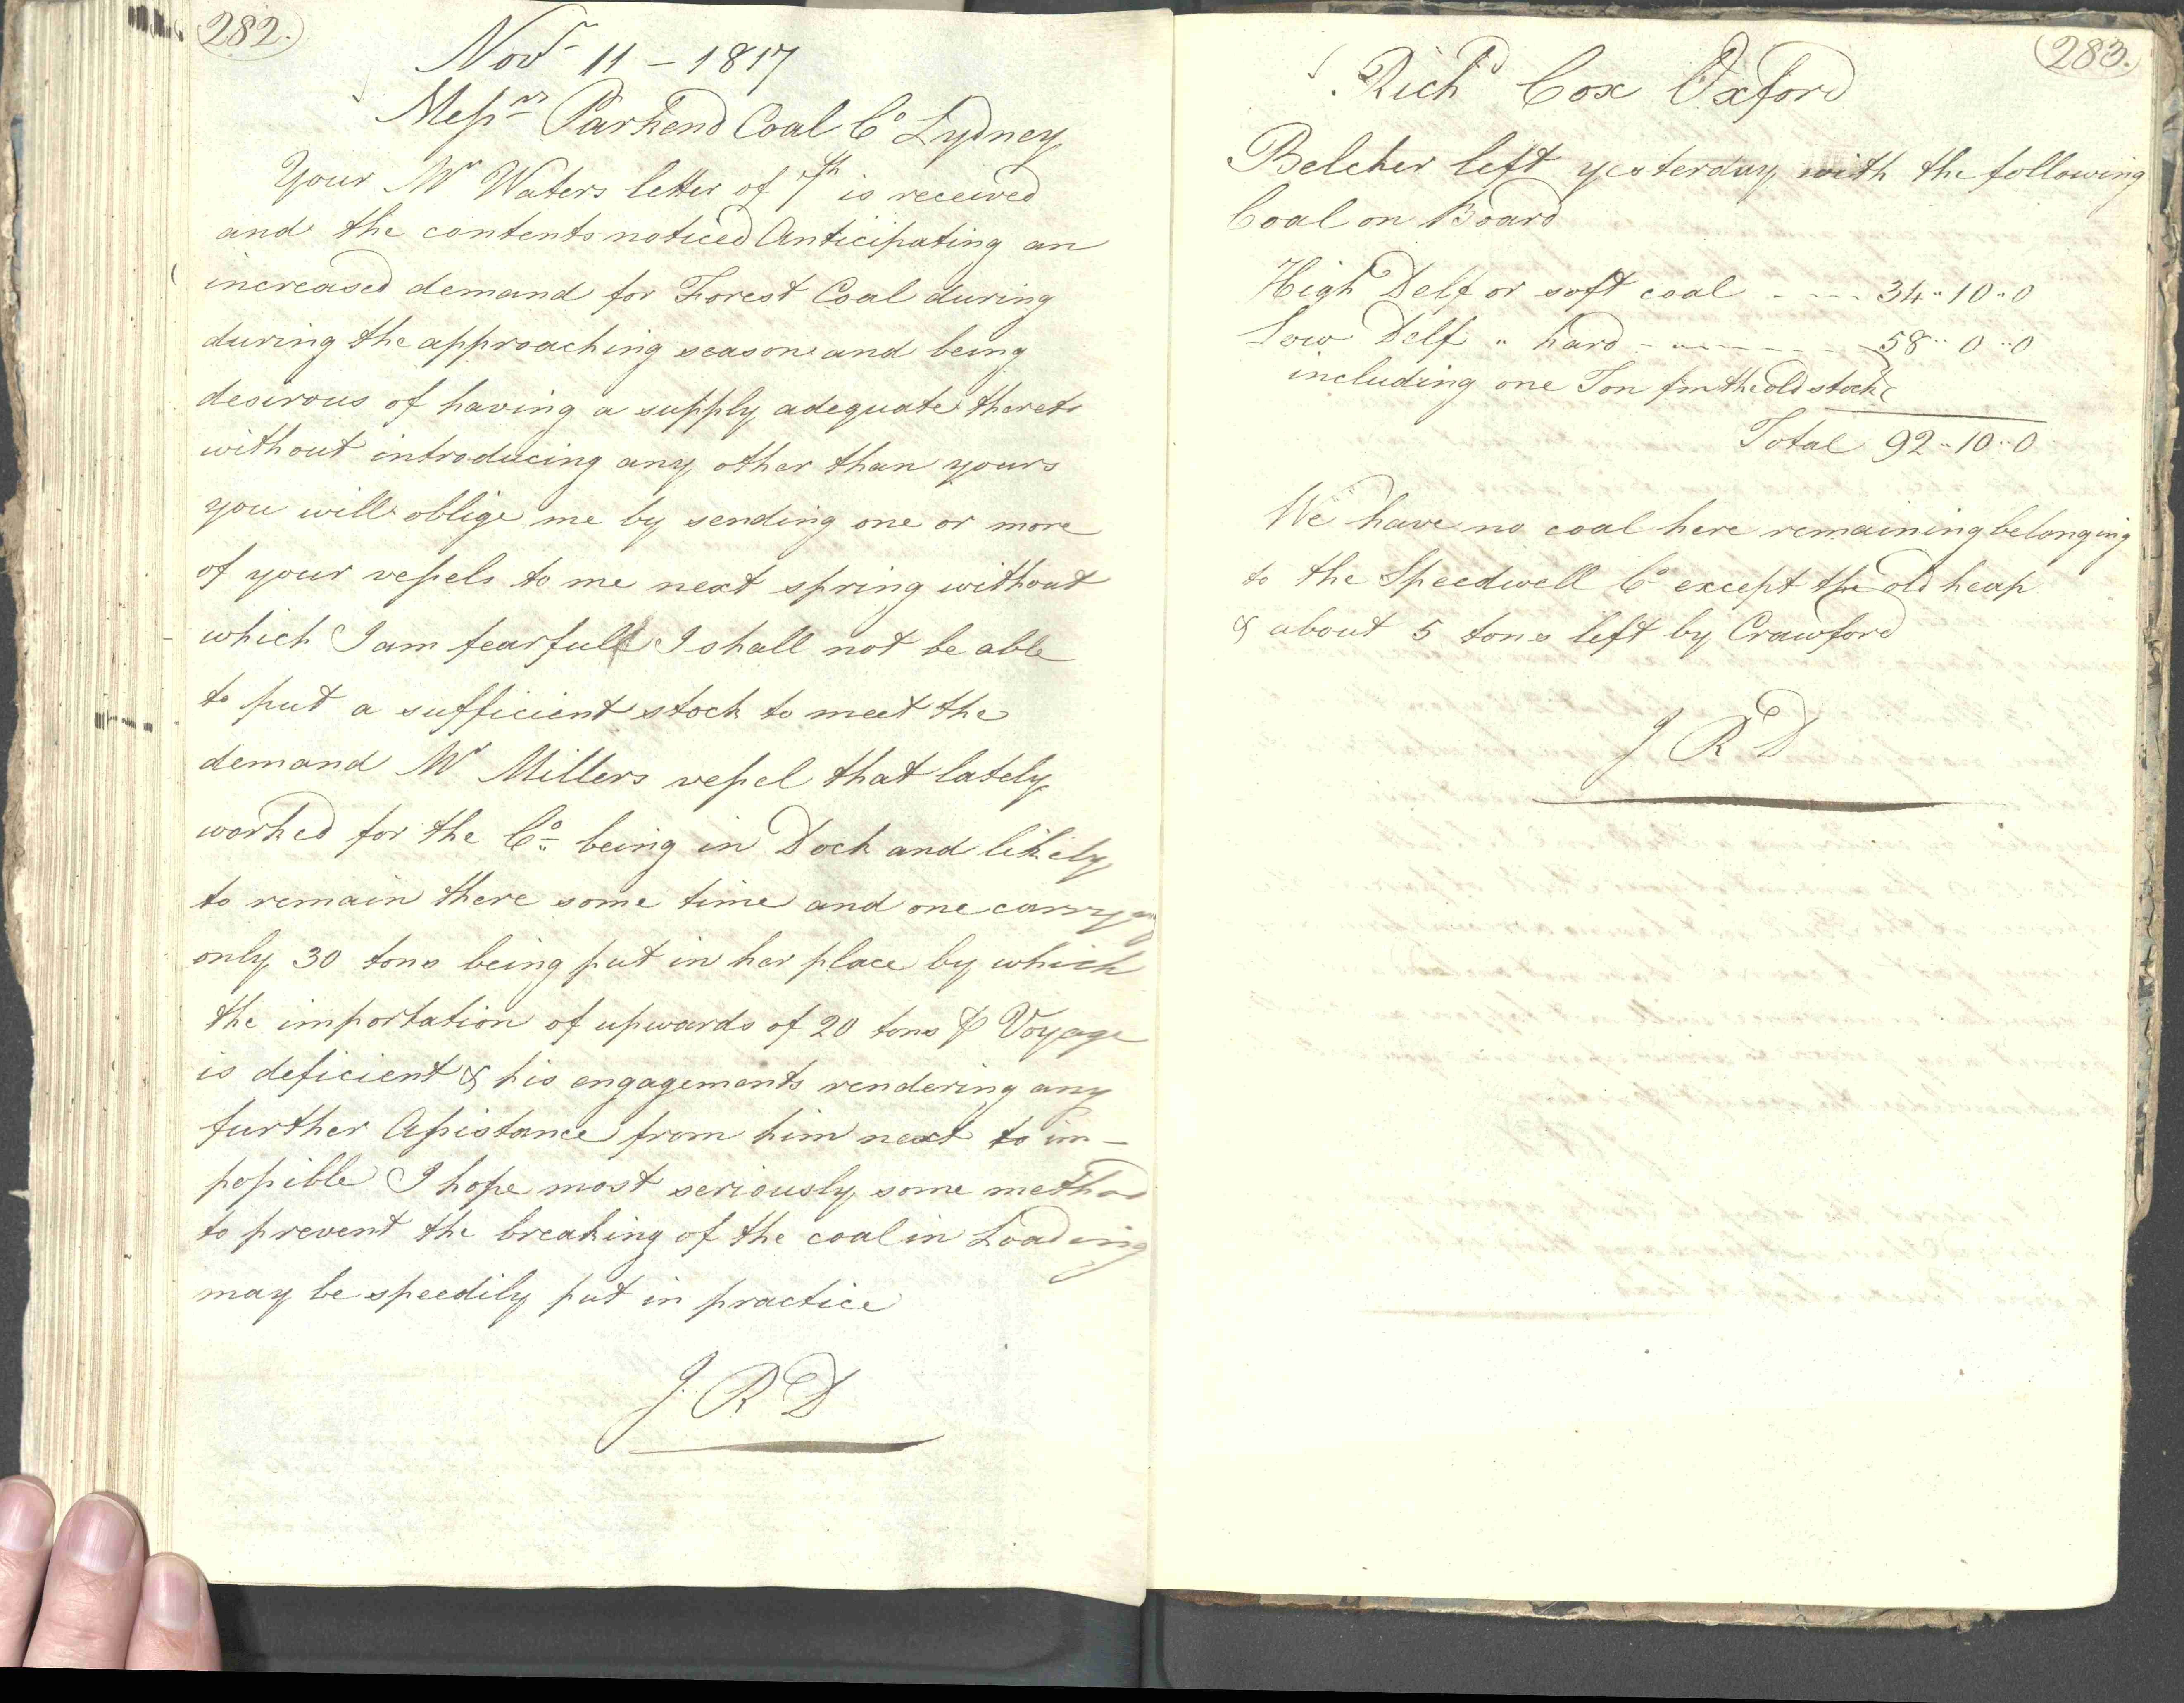 282.
Novr 11 - 1817
Messrs Parkend Coal Co Lydney
Your Mr Waters letter of 7th is received
and the contents noticed Anticipating an
increased demand for Forest Coal during
during the approaching season and being
desirous of having a supply adequate thereto
without introducing any other than yours
you will oblige me by sending one or more
of your vessels to me next spring without
which I am fearfull I shall not be able
to put a sufficient stock to meet the
demand Mr Millers vessel that lately
worked for the Co being in Dock and likely
to remain there some time and one carrying
only 30 tons being put in her place by which
the importation of upwards of 20 tons ⅌ Voyage
is deficient & his engagements rendering any
further Assistance from him next to im-
possible I hope most seriously some method
to prevent the breaking of the coal in Loading
may be speedily put in practice
J. R D
283.
Richd Cox Oxford
Belcher left yesterday with the following
Coal on Board
High Delf or soft coal - - - - 34 " 10 " 0
Low Delf " hard - - - - - - - 58 " 0 " 0
including one Ton fm the old stock
Total 92 " 10 " 0
We have no coal here remaining belonging
to the Speedwell Co except the old heap
& about 5 tons left by Crawford
J R D